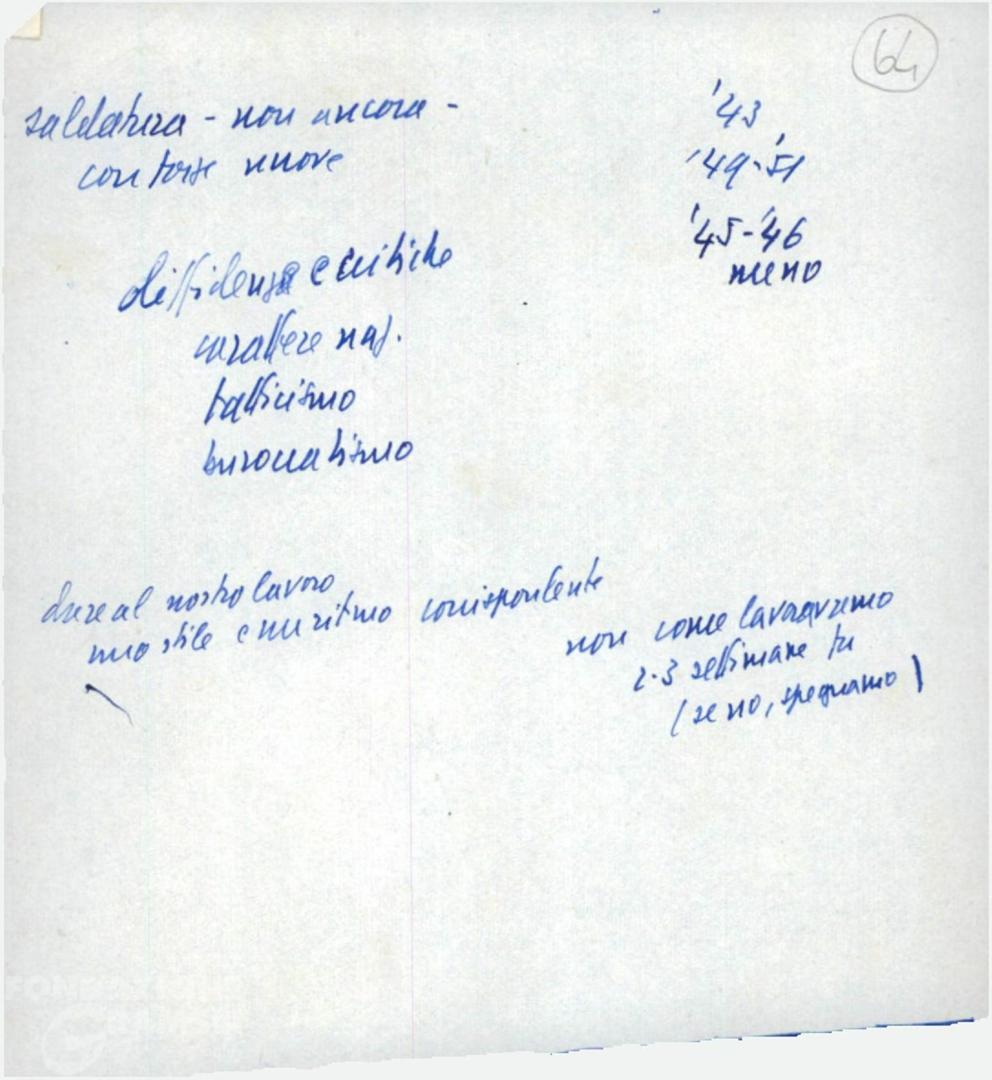 64
saldatura - non ancora -
con forze nuove
'43
'49-'51
'45-'46
meno
diffidenza e critiche
carattere naz.
tatticismo
burocratismo
dare al nostro lavoro
uno stile e un ritmo corrispondente
non come lavoravamo
2-3 settimane fa
(se no, spegnamo)